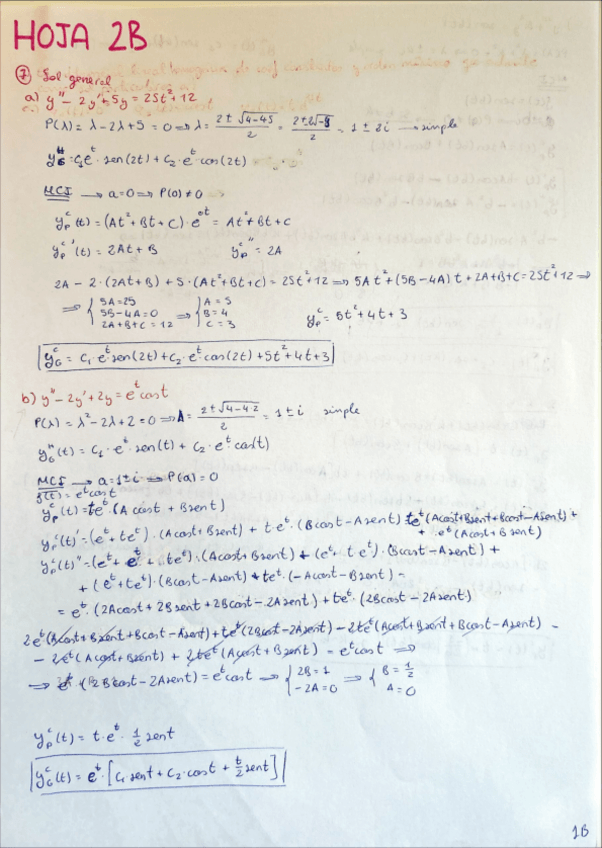 HOJA 2B
7 Sol general
a) y'' - 2y' + 5y = 25t² + 12
P(λ) = λ - 2λ + 5 = 0 ⇒ λ = (2 ± √(4-4·5))/2 = = 1 ± 2i → simple
y_G^H = C₁e^t · sen(2t) + C₂ · e^t cos(2t)
MCI → a=0 ⇒ P(0) ≠ 0
y_p^c(t) = (At² + Bt + C) · e^{0t} = At² + Bt + C
y_p^c'(t) = 2At + B y_p^c'' = 2A
2A - 2·(2At+B) + 5·(At²+Bt+C) = 25t² + 12 ⇒ 5At² + (5B-4A)t + 2A+B+C = 25t² + 12 ⇒
⇒ { 5A = 25 ⇒ { A = 5
5B-4A = 0 B = 4
2A+B+C = 12 C = 3
y_p^c = 5t² + 4t + 3
y_G^c = C₁·e^t sen(2t) + C₂·e^t cos(2t) + 5t² + 4t + 3
b) y'' - 2y' + 2y = e^t cost
P(λ) = λ² - 2λ + 2 = 0 ⇒ λ = (2 ± √(4-4·2))/2 = 1 ± i simple
y_G^H(t) = C₁ · e^t · sen(t) + C₂ · e^t cos(t)
MCI → a = 1 ± i ⇒ P(a) = 0
f(t) = e^t cost
y_p^c(t) = te^t · (A cost + B sent)
y_p^c(t)' = (e^t + te^t) · (Acost + Bsent) + t·e^t · (Bcost - Asent) te^t (Acost + Bsent + Bcost - Asent) +
+ e^t (Acost + Bsent)
y_p^c(t)'' = (e^t + e^t + te^t) · (Acost + Bsent) + (e^t + te^t) · (Bcost - Asent) +
+ (e^t + te^t) · (Bcost - Asent) + te^t · (-Acost - Bsent) =
= e^t · (2Acost + 2Bsent + 2Bcost - 2Asent) + te^t · (2Bcost - 2Asent)
2e^t (Acost + Bsent + Bcost - Asent) + te^t (2Bcost - 2Asent) - 2te^t (Acost + Bsent + Bcost - Asent) -
- 2e^t (Acost + Bsent) + 2te^t (Acost + Bsent) = e^t cost ⇒
⇒ e^t (2Bcost - 2Asent) = e^t cost ⇒ { 2B = 1 ⇒ { B = 1/2
-2A = 0 A = 0
y_p^c(t) = t · e^t · 1/2 sent
y_G^c(t) = e^t · [C₁ sent + C₂ · cost + t/2 sent]
1B